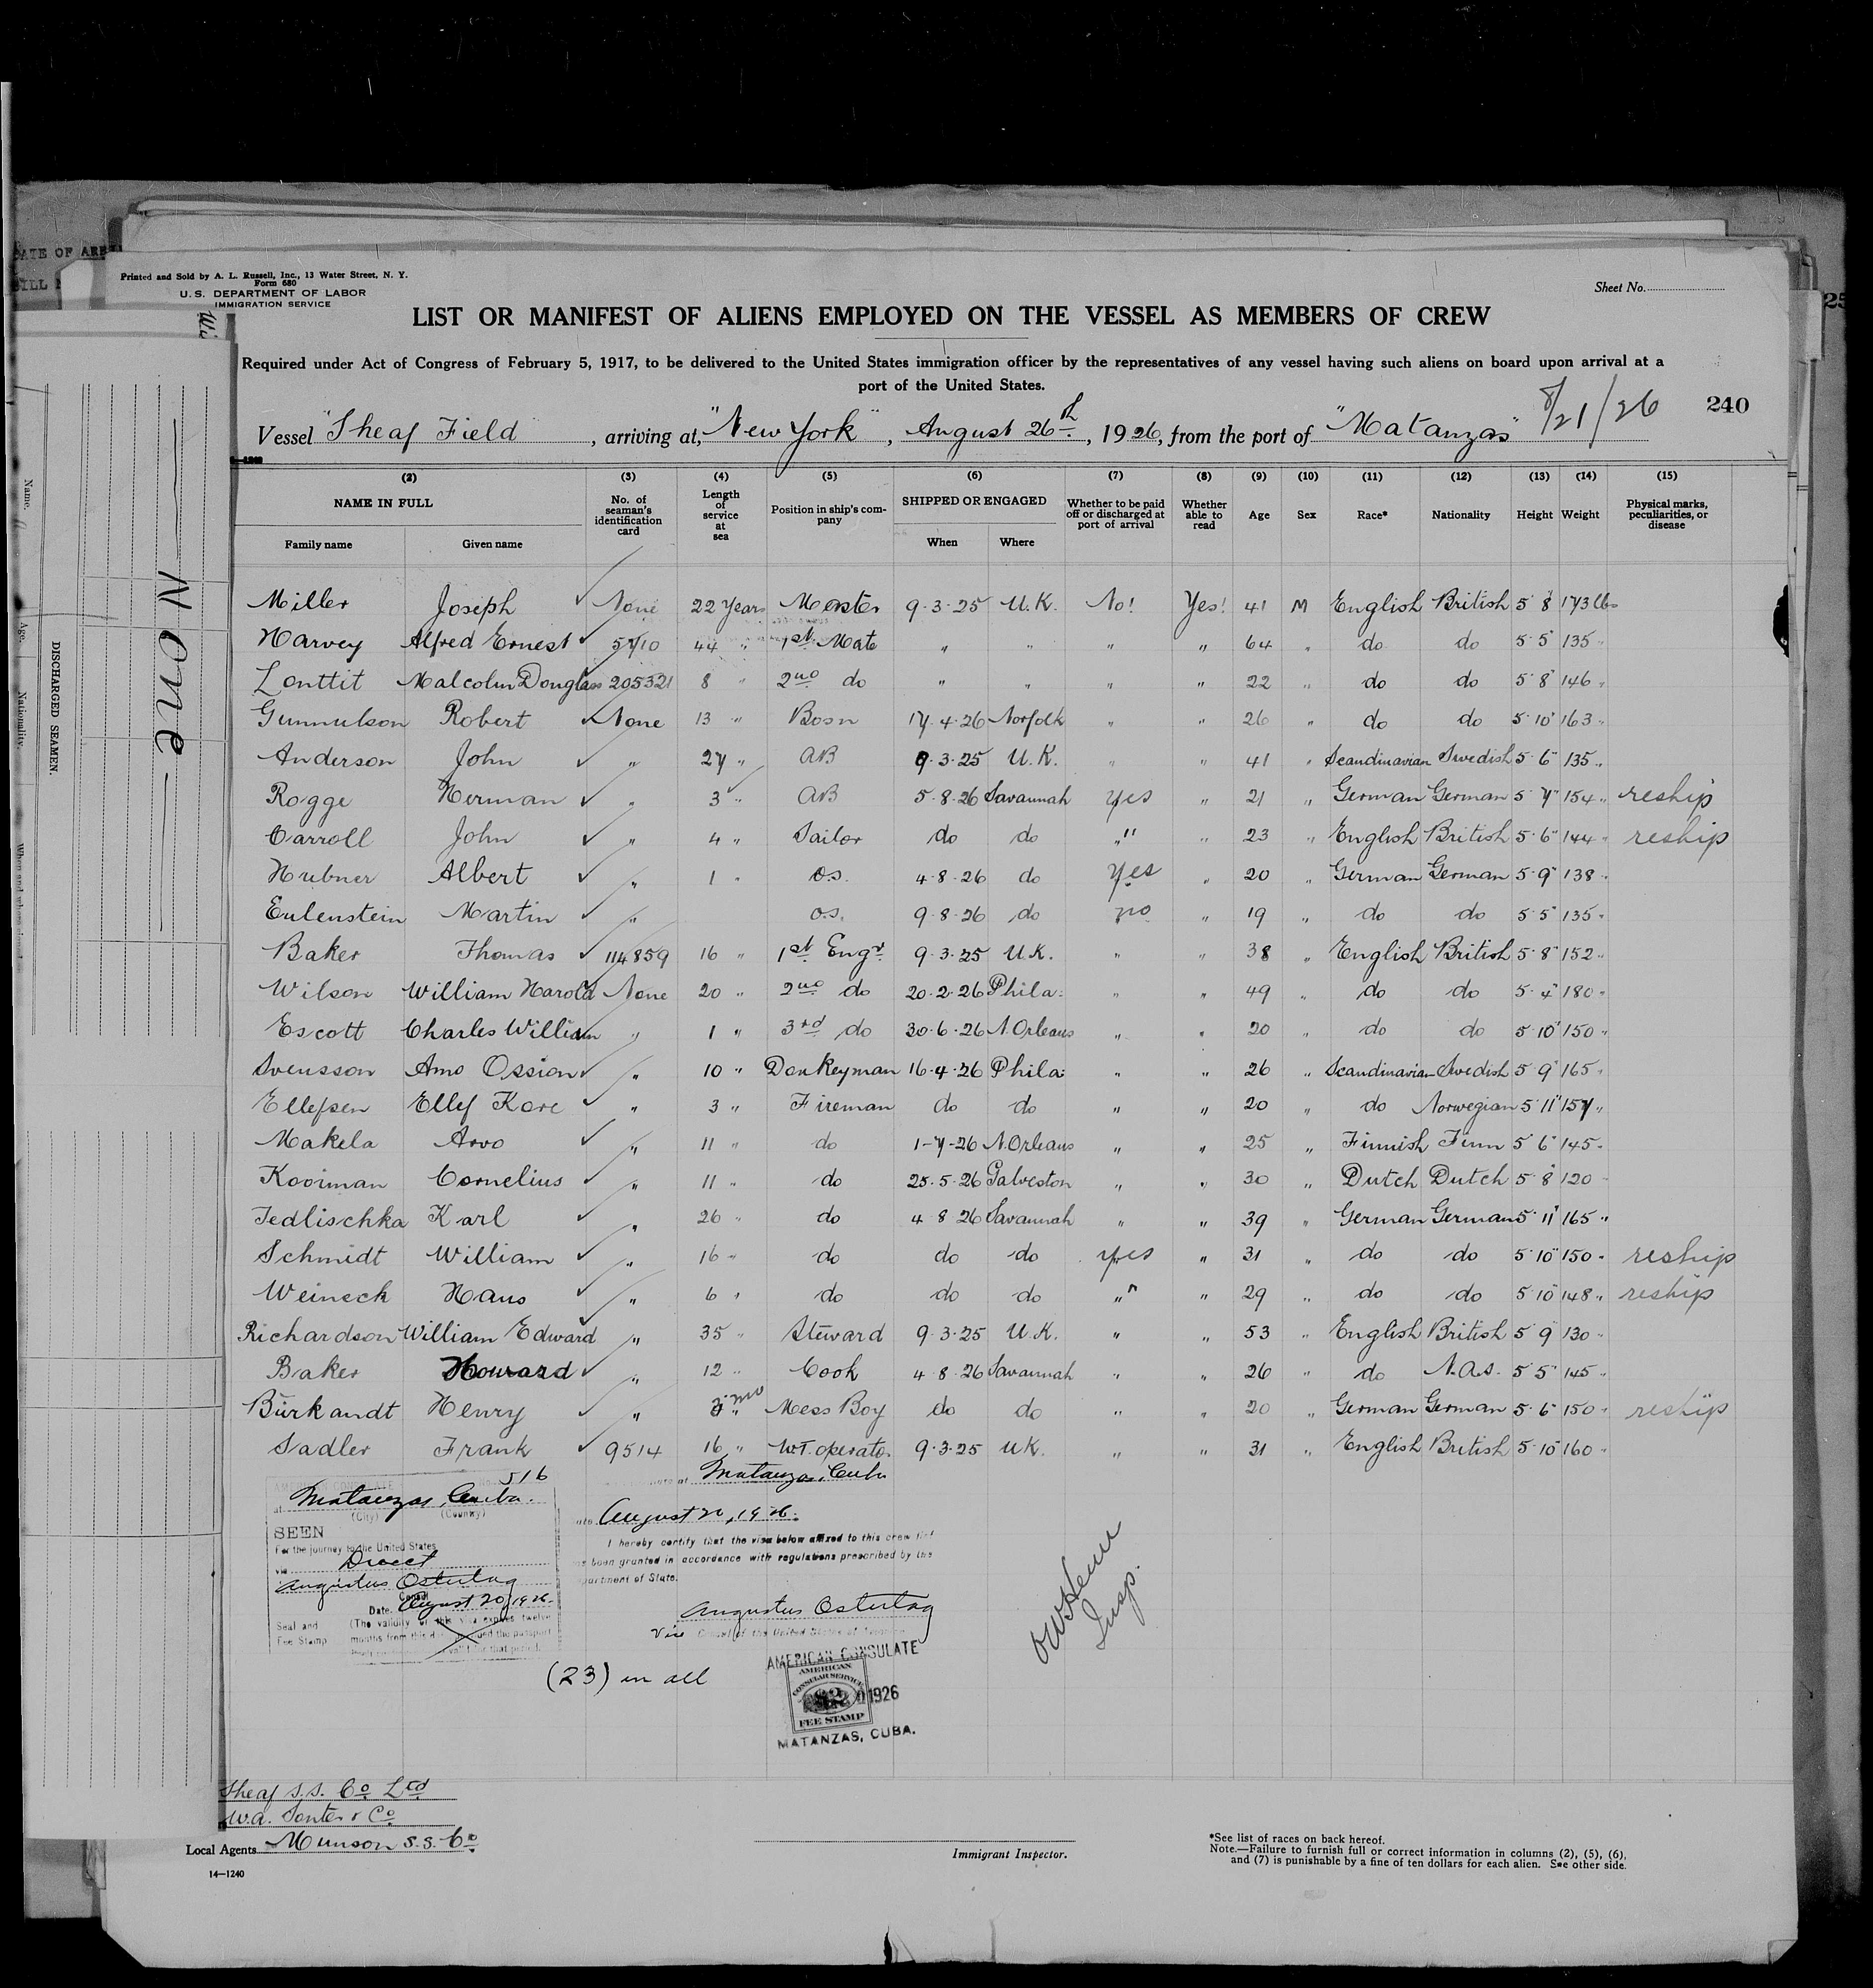 DATE OF ARR
Printed and Sold by A. L. Russell, Inc., 13 Water Street, N. Y.
Form 680
U. S. DEPARTMENT OF LABOR
IMMIGRATION SERVICE
Sheet No.
LIST OR MANIFEST OF ALIENS EMPLOYED ON THE VESSEL AS MEMBERS OF CREW
Required under Act of Congress of February 5, 1917, to be delivered to the United States immigration officer by the representatives of any vessel having such aliens on board upon arrival at a
port of the United States.
8/21/26 240
Vessel "Sheaf Field", arriving at, "New York", August 26th, 1926, from the port of "Matanzas"
(2) (3) (4) (5) (6) (7) (8) (9) (10) (11) (12) (13) (14) (15)
NAME IN FULL No. of seaman's identification card Length of service at sea Position in ship's company SHIPPED OR ENGAGED Whether to be paid off or discharged at port of arrival Whether able to read Age Sex Race* Nationality Height Weight Physical marks, peculiarities, or disease
Family name Given name When Where
Miller Joseph None 22 Years Master 9-3-25 U.K. No! Yes! 41 M English British 5 8 173 lbs
Harvey Alfred Ernest 5710 44 " 1st Mate " " " " 64 " do do 5 5 135 "
Malcolm Douglas 205321 8 " 2nd do " " " " 22 " do do 5 8 146 "
Gunnulson Robert None 13 " Bosn 17.4.26 Norfolk " " 26 " do do 5 10 163 "
Anderson John " 27 " AB 9.3.25 U.K. " " 41 " Scandinavian Swedish 5 6 135 "
Rogge Herman " 3 " AB 5.8.26 Savannah Yes " 21 " German German 5 7 154 " reship
Carroll John " 4 " Sailor do do " " 23 " English British 5 6 144 " reship
Hubner Albert " 1 " O.S. 4.8.26 do Yes " 20 " German German 5 9 138 "
Eulenstein Martin " O.S. 9.8.26 do no " 19 " do do 5 5 135 "
Baker Thomas 114859 16 " 1st Engr 9.3.25 U.K. " " 38 " English British 5 8 152 "
Wilson William Harold None 20 " 2nd do 20.2.26 Phila: " " 49 " do do 5 4 180 "
Escott Charles William " 1 " 3rd do 30.6.26 N Orleans " " 20 " do do 5 10 150 "
Svensson Arno Ossion " 10 " Donkeyman 16.4.26 Phila: " " 26 " Scandinavian Swedish 5 9 165 "
Ellefsen Ellef Kore " 3 " Fireman do do " " 20 " do Norwegian 5 11 157 "
Makela Arvo " 11 " do 1-7-26 N.Orleans " " 25 " Finnish Finn 5 6 145 "
Kooiman Cornelius " 11 " do 25.5.26 Galveston " " 30 " Dutch Dutch 5 8 120
Jedlischka Karl " 26 " do 4 8 26 Savannah " " 39 " German German 5 11 165 "
Schmidt William " 16 " do do do yes " 31 " do do 5 10 150 " reship
Weineck Hans " 6 " do do do " " 29 " do do 5 10 148 " reship
Richardson William Edward " 35 " Steward 9.3.25 U.K. " " 53 " English British 5 9 130 "
Baker Howard " 12 " Cook 4 8 26 Savannah " " 26 " do N.A.S. 5 5 145 "
Burkandt Henry " 3 mo " Mess Boy do do " " 20 " German German 5 6 150 " reship
Sadler Frank 9514 16 " W.T. operator 9.3.25 UK. " " 31 " English British 5 10 160
516
Matanzas, Cuba.
(City) (Country)
SEEN
For the journey to the United States
via Direct
Augustus Ostertag
Consul
Date. August 20, 1926.
Seal and
Fee Stamp
(The validity of this visa expires twelve
months from this date
Matanzas, Cuba
August 20, 1926.
I hereby certify that the visa below affixed to this crew list
has been granted in accordance with regulations prescribed by the
Department of State.
Augustus Ostertag
Vice Consul of the United States of America
AMERICAN CONSULATE
AMERICAN
CONSULAR SERVICE
$2
1926
FEE STAMP
MATANZAS, CUBA.
(23) in all
Insp.
Sheaf S.S. Co Ltd
W.A. Souter & Co
Local Agents Munson S.S. Co
14—1240
Immigrant Inspector.
*See list of races on back hereof.
Note.—Failure to furnish full or correct information in columns (2), (5), (6),
and (7) is punishable by a fine of ten dollars for each alien. See other side.
None
DISCHARGED SEAMEN.
Name.
Age.
Nationality.